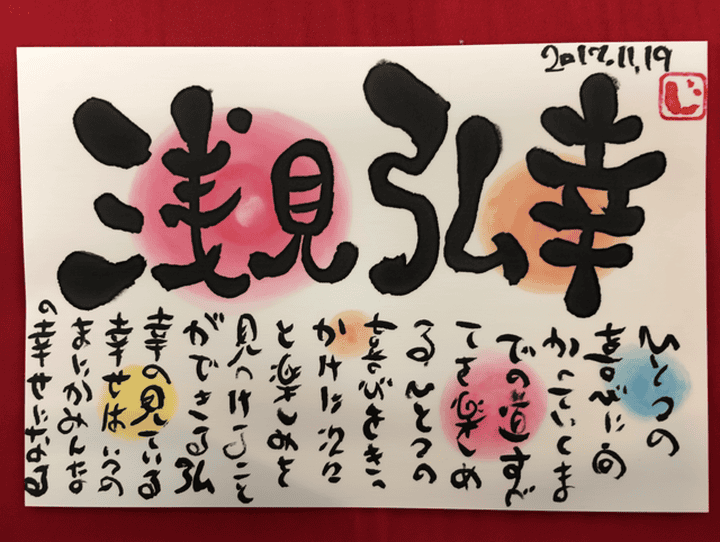 2017.11.19
じ
浅見弘幸
ひとつの
喜びに向
かっていくま
での道すが
てさえ楽しめ
る ひとつの
喜びをきっ
かけに次に
と楽しみを
見つけること
ができる弘
幸の見ている
幸せは いつの
まにかみんな
の幸せなたせ